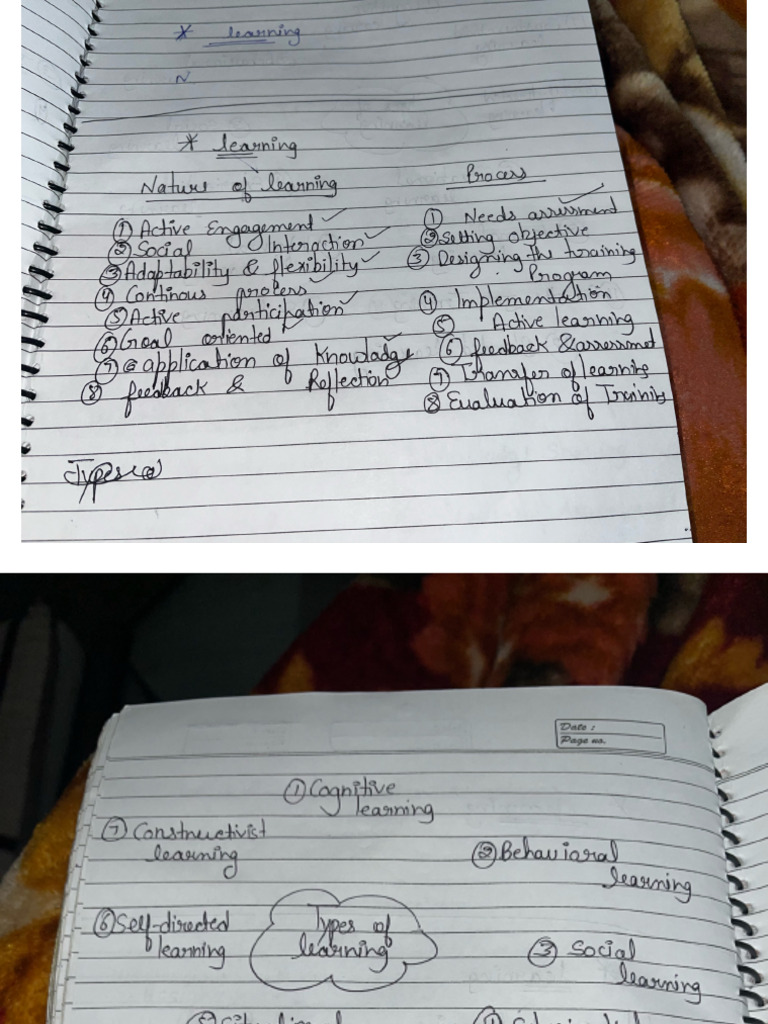 * learning
N
* learning
Nature of learning
① Active Engagement ✓
② Social Interaction ✓
③ Adaptability & flexibility ✓
④ Continous process ✓
⑤ Active participation ✓
⑥ Goal oriented ✓
⑦ application of Knowladge
⑧ feedback & Reflection
Process
① Needs assessment
② Setting objective
③ Designing the training
Program
④ Implementation
⑤ Active learning
⑥ feedback & assessment
⑦ Transfer of learning
⑧ Evaluation of Training
Types
Date :
Page no.
① Cognitive
learning
⑦ Constructivist
learning
② Behavioral
learning
⑥ Self-directed
learning
Types of
learning
③ Social
learning